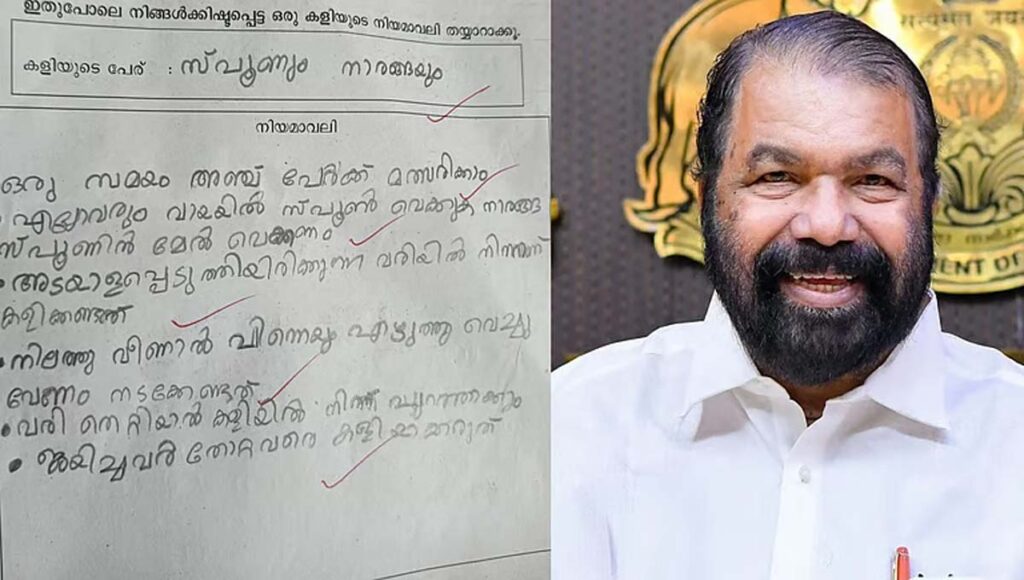 ഇതുപോലെ നിങ്ങൾക്കിഷ്ടപ്പെട്ട ഒരു കളിയുടെ നിയമാവലി തയ്യാറാക്കൂ.
കളിയുടെ പേര് : സ്പൂണും നാരങ്ങയും
നിയമാവലി
ഒരു സമയം അഞ്ച് പേർക്ക് മത്സരിക്കാം
• എല്ലാവരും വായയിൽ സ്പൂൺ വെക്കുക നാരങ്ങ
സ്പൂണിൻ മേൽ വെക്കണം
• അടയാളപ്പെടുത്തിയിരിക്കുന്ന വരിയിൽ നിന്നാണ്
കളിക്കേണ്ടത്
• നിലത്തു വീണാൽ പിന്നെയും എടുത്തു വെച്ചു
വേണം നടക്കേണ്ടത്
• വരി തെറ്റിയാൽ കളിയിൽ നിന്ന് പുറത്താക്കാം
• ജയിച്ചവർ തോറ്റവരെ കളിയാക്കരുത്
सत्यमेव जयते
MENT OF